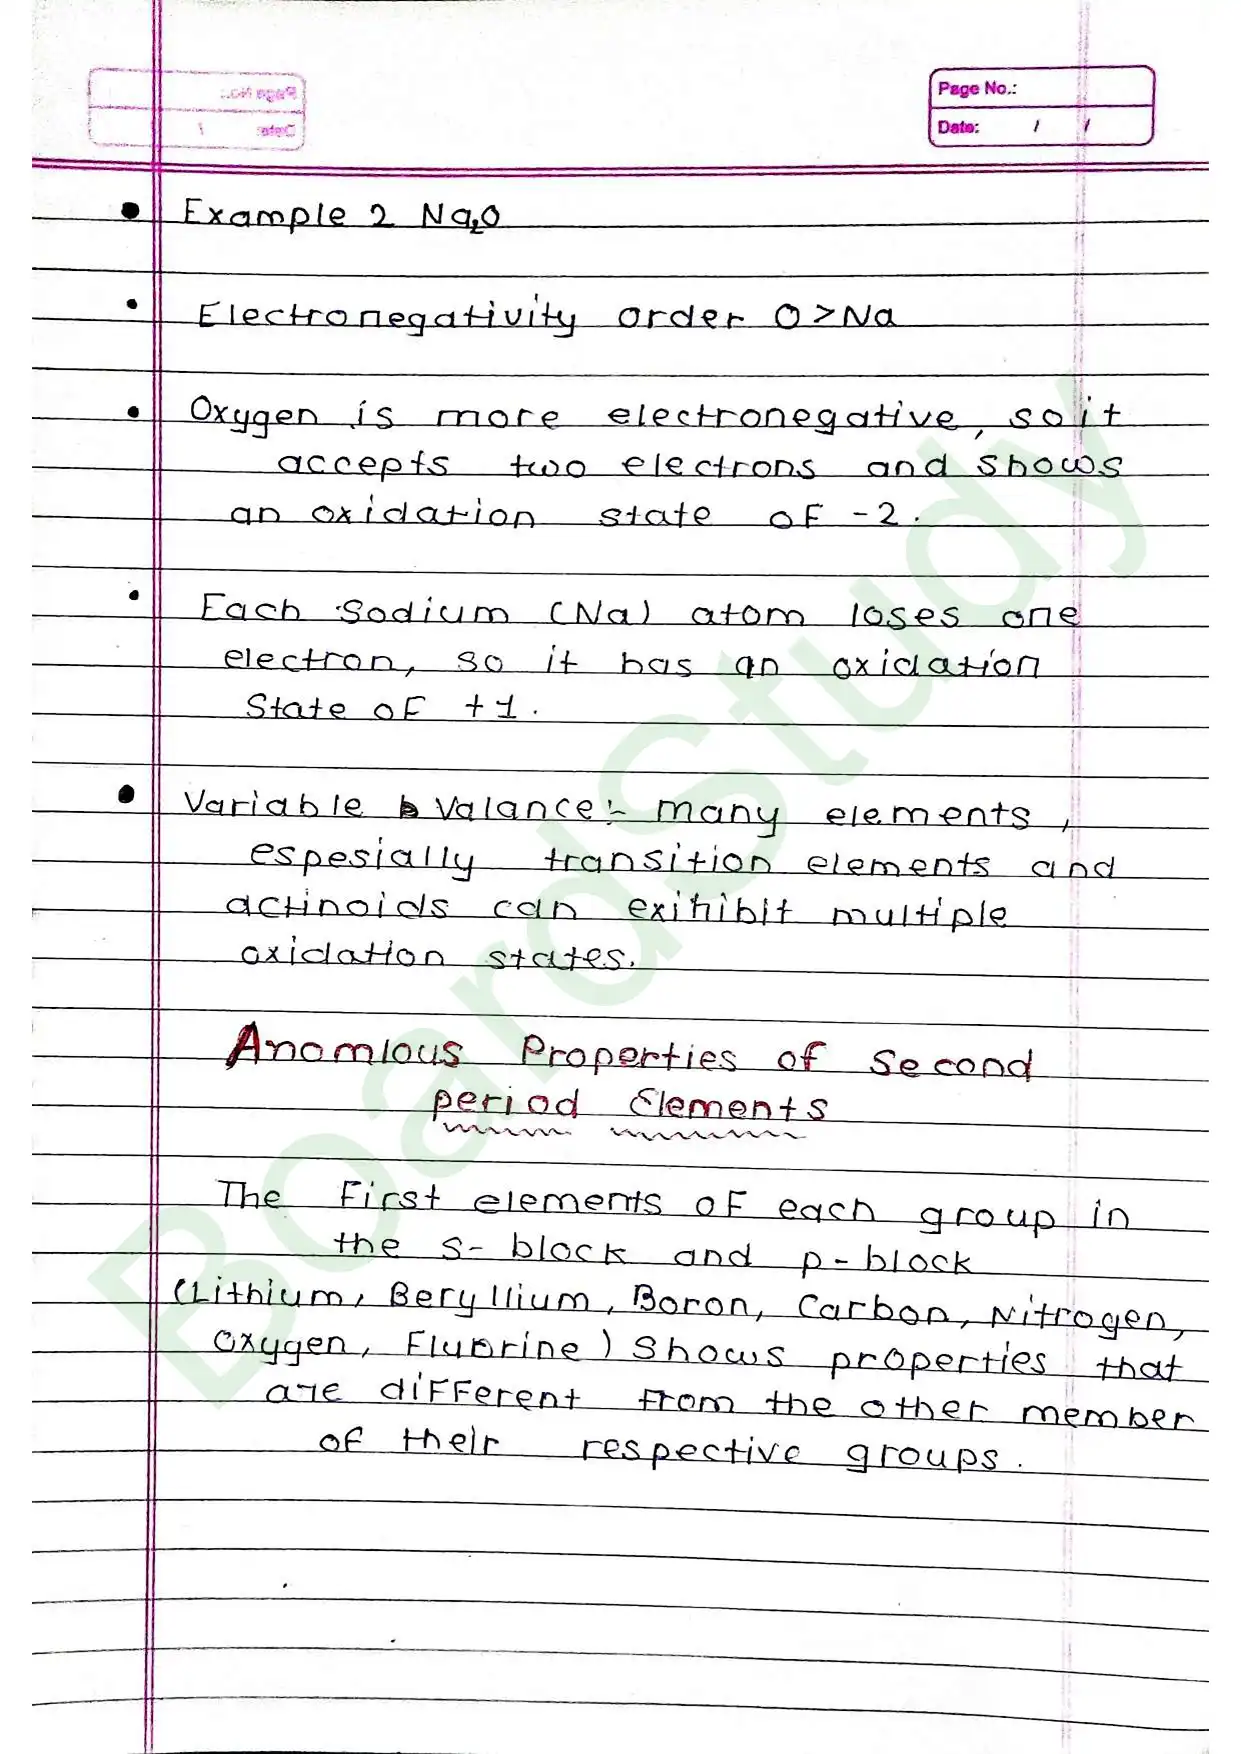 Page No.:
Date: / /
• Example 2 Na₂O
• Electronegativity order O>Na
• Oxygen is more electronegative, so it
accepts two electrons and shows
an oxidation state of -2.
• Each Sodium (Na) atom loses one
electron, so it has an oxidation
State of +1.
• Variable Valance:- many elements,
espesially transition elements and
actinoids can exihibit multiple
oxidation states.
Anomlous Properties of Second
period Elements
The First elements of each group in
the s-block and p-block
(Lithium, Beryllium, Boron, Carbon, Nitrogen,
Oxygen, Fluorine) Shows properties that
are different from the other member
of their respective groups.
BoardStudy